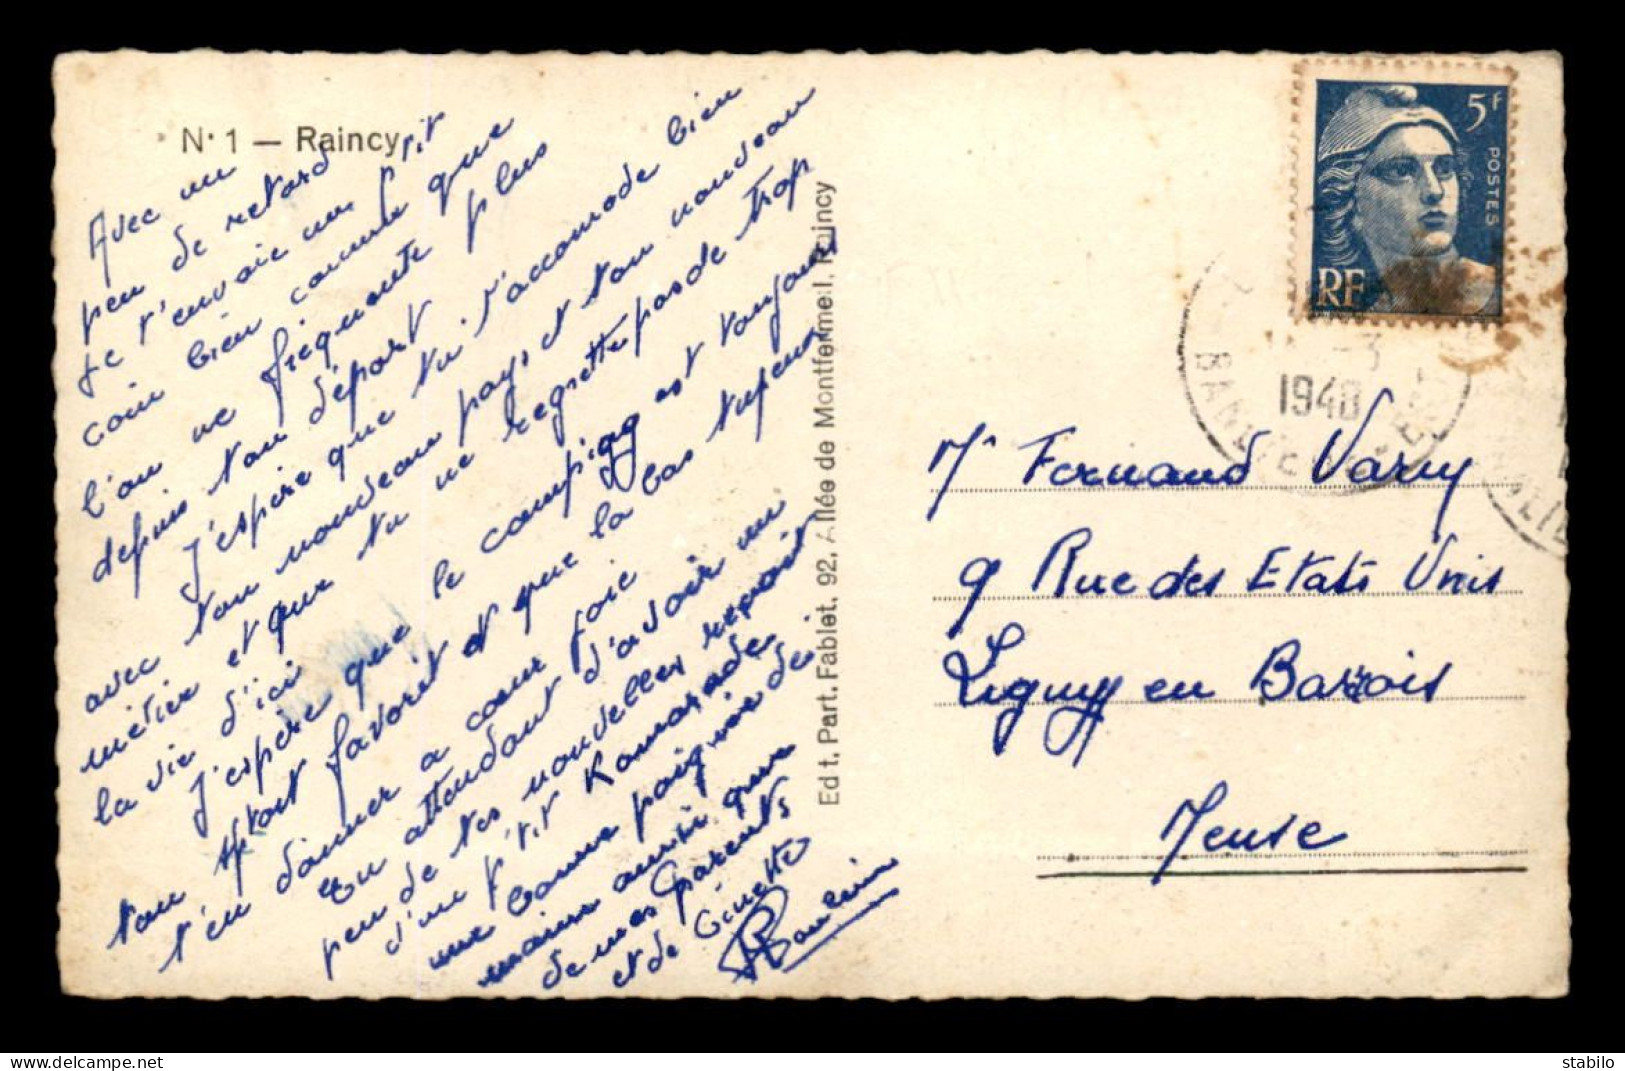 N° 1 — Raincy
Avec un
peu de retard
je t'envoie un p'tit
coin bien connu que
l'on ne fréquente plus
depuis ton départ
J'espère que tu t'accomode bien
avec ton nouveau pays et ton nouveau
métier et que tu ne regrette pas de trop
la vie d'ici
J'espère que le camping est toujours
ton sport favorit et que la bas tu peux
t'en donner a cœur joie
En attendant d'avoir un
peu de tes nouvelles reçoit
d'un p'tit Kamarade
une bonne poignée de
main ainsi que
de mes parents
et de Ginette
Edit. Part. Fablet, 92, Allée de Montfermeil, Raincy
5F
POSTES
RF
-3
1948
Mr Fernand Varny
9 Rue des Etats Unis
Ligny en Barrois
Meuse
stabilo
delcampe.net